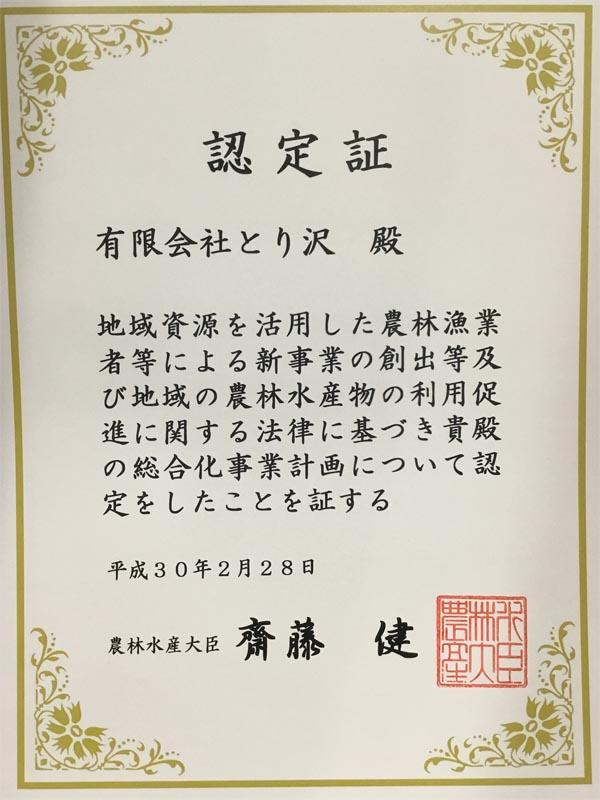 認定証
有限会社とり沢　殿
地域資源を活用した農林漁業
者等による新事業の創出等及
び地域の農林水産物の利用促
進に関する法律に基づき貴殿
の総合化事業計画について認
定をしたことを証する
平成３０年２月２８日
農林水産大臣　齋藤　健